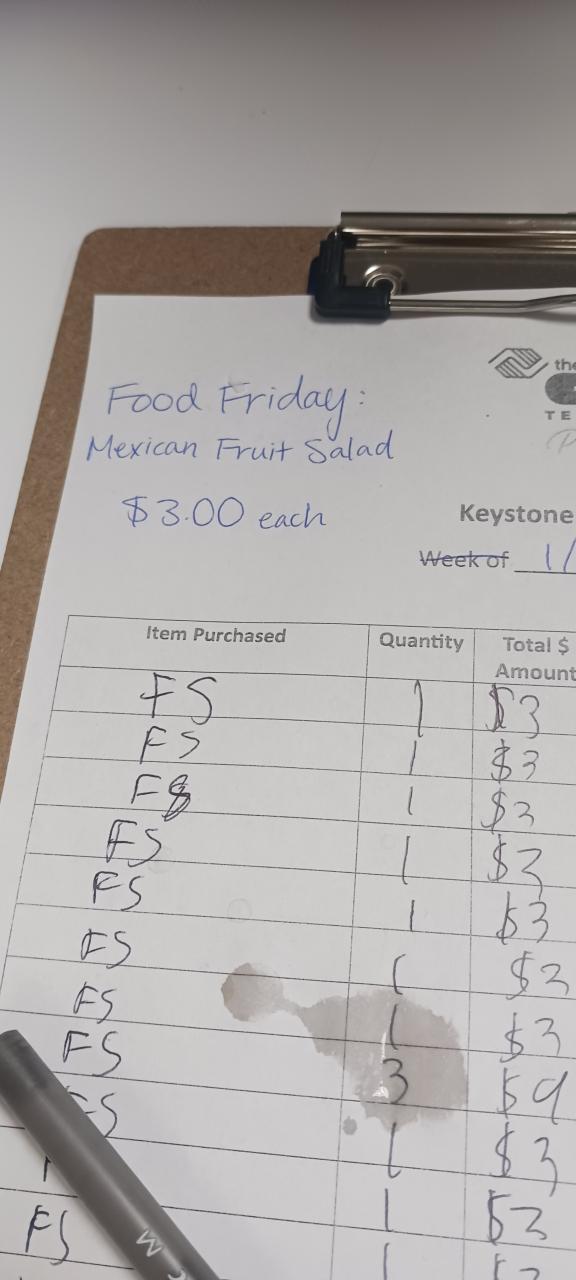 Food Friday:
Mexican Fruit Salad
$3.00 each
the
TE
Keystone
Week of 1/
Item Purchased Quantity Total $ Amount
FS 1 $3
FS 1 $3
FS 1 $3
FS 1 $3
FS 1 $3
FS 1 $3
FS 1 $3
FS 3 $9
FS 1 $3
1 $3
FS 1